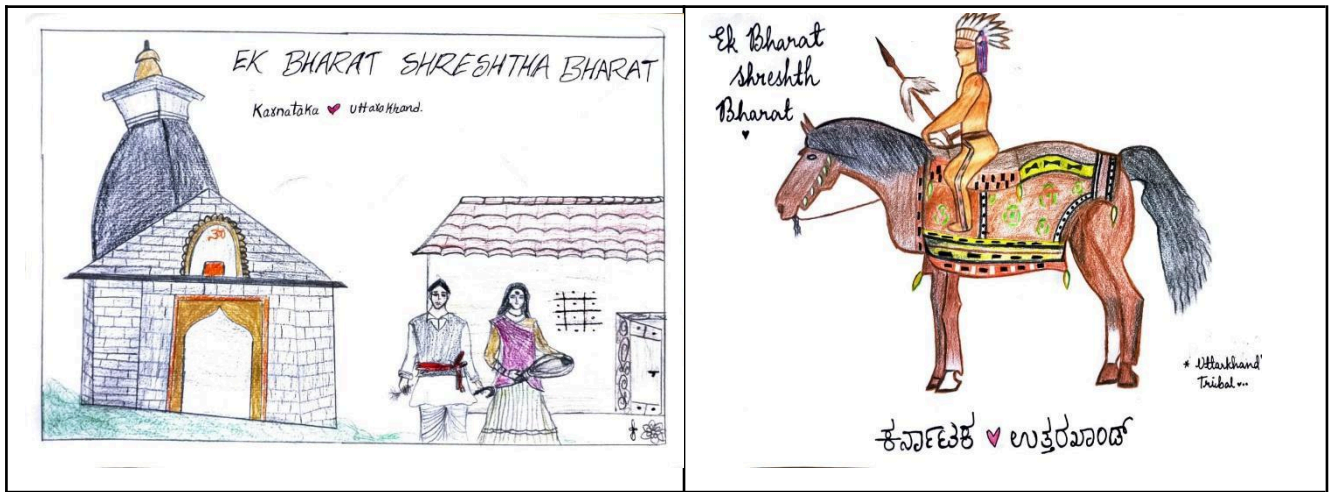 EK BHARAT SHRESHTHA BHARAT
Karnataka ♥ Uttarakhand.
ॐ
Ek Bharat
Shreshth
Bharat
♥
* Uttarkhand'
Tribal...
ಕರ್ನಾಟಕ ♥ ಉತ್ತರಖಾಂಡ್